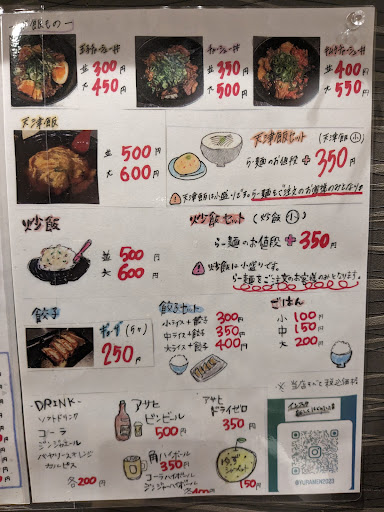 飯もの
チャーシュー丼
並 300円
大 450円
並 350円
大 500円
並 400円
大 550円
天津飯
並 500円
大 600円
天津飯セット (天津飯 小)
らー麺のお値段 + 350円
天津飯は小盛りです。らー麺をご注文のお客様のみとなります
炒飯
並 500円
大 600円
炒飯セット (炒飯 小)
らー麺のお値段 + 350円
炒飯は小盛りです。
らー麺をご注文のお客様のみとなります。
餃子
ギョーザ (5ケ)
250円
餃子セット
小ライス+餃子 300円
中ライス+餃子 350円
大ライス+餃子 400円
ごはん
小 100円
中 150円
大 200円
※当店すべて税込価格
-DRINK-
ソフトドリンク
コーラ
ジンジャエール
バヤリースオレンジ
カルピス
各200円
アサヒ
ビンビール
500円
アサヒ
ドライゼロ
350円
角ハイボール
350円
コーラハイボール
ジンジャーハイボール
各400円
ゆず
シャーベット
150円
@YURAMEN2023